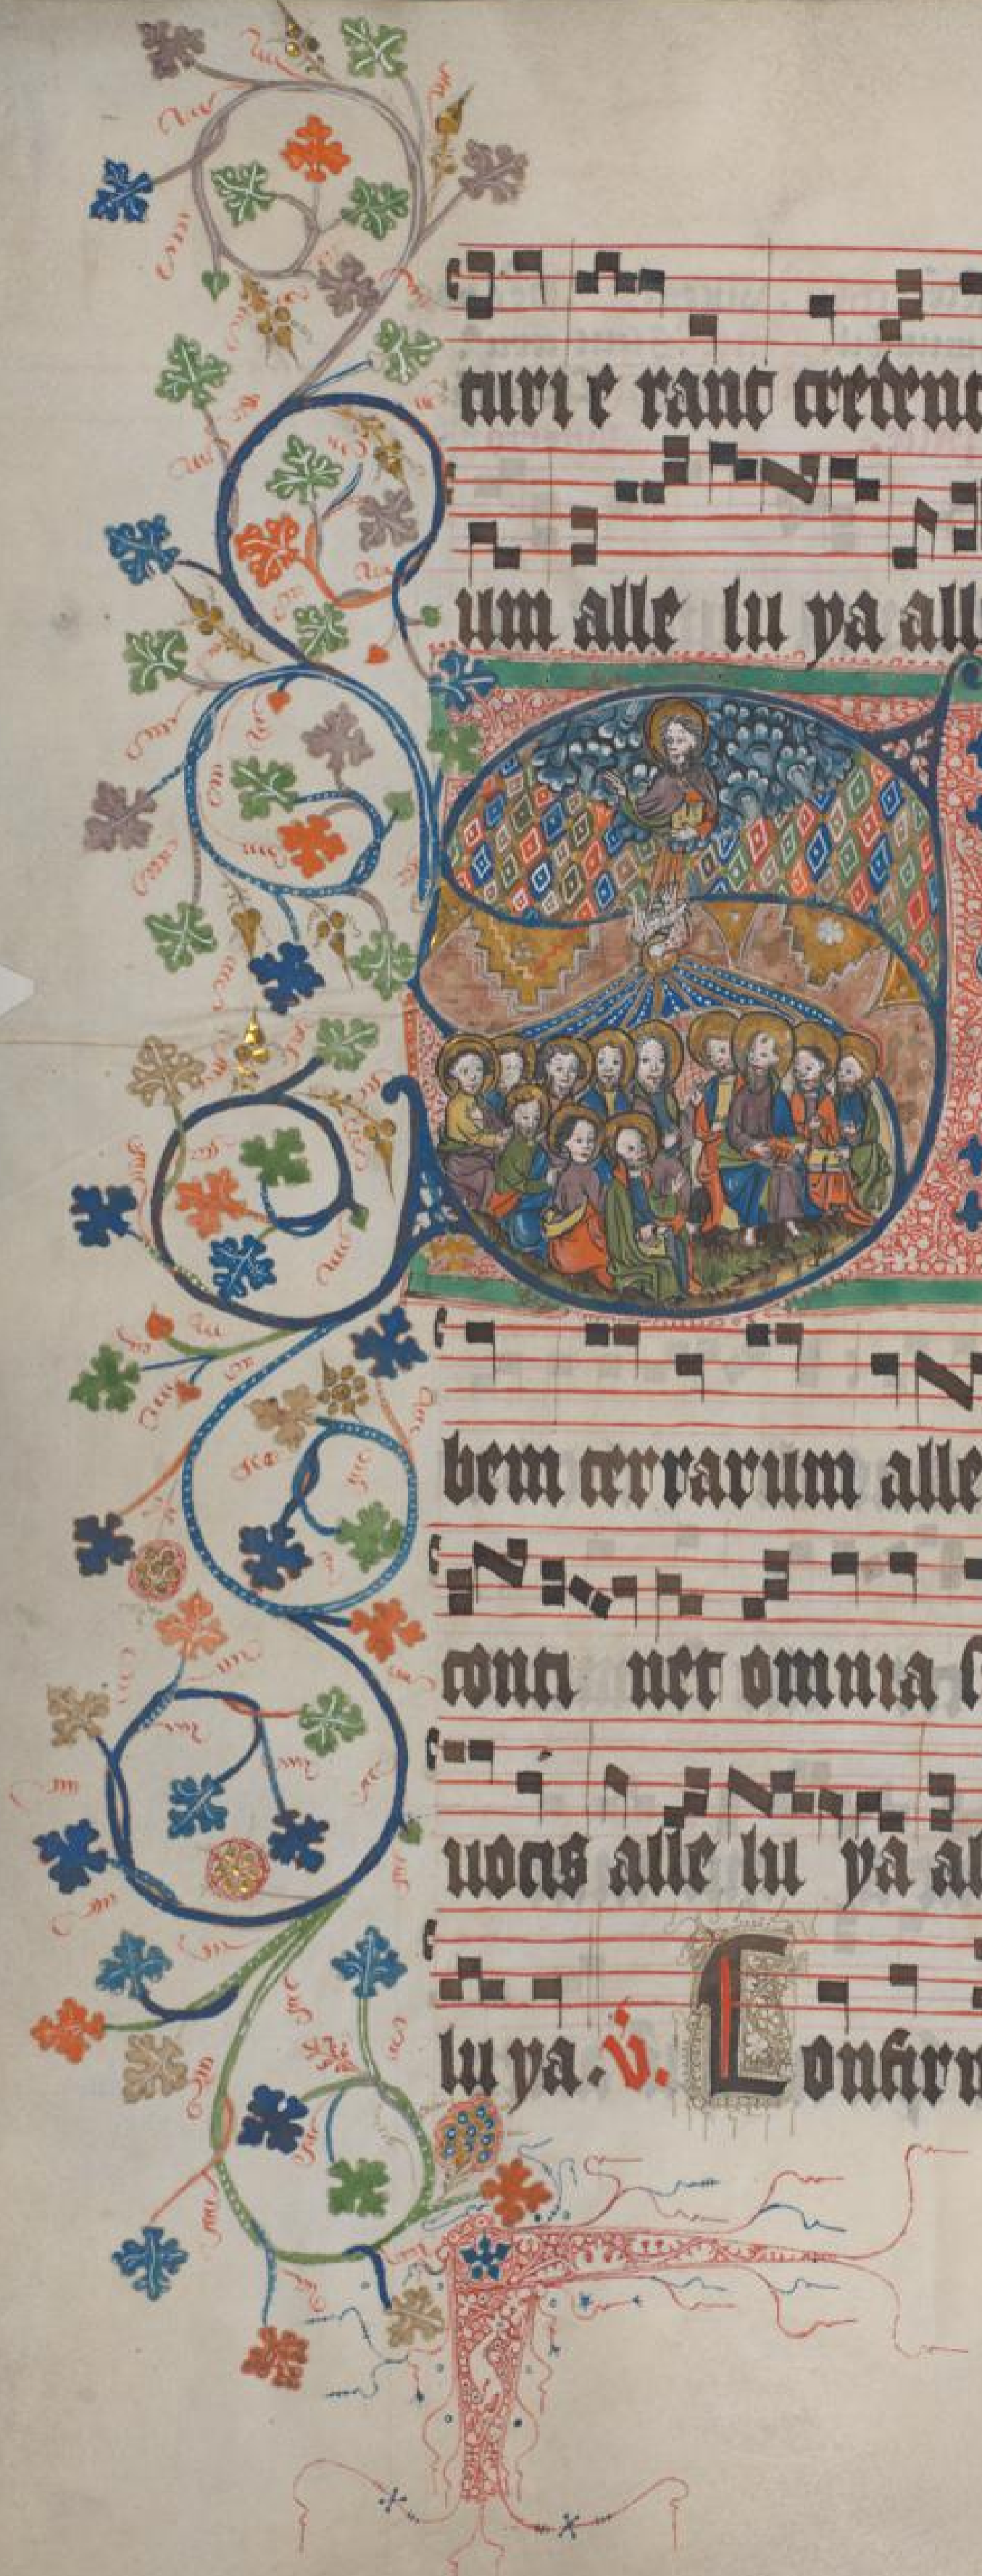 turi e rant credent
um alle lu ya all
S
bem terrarum alle
conti net omnia s
uocis alle lu ya al
lu ya. v. Confirm